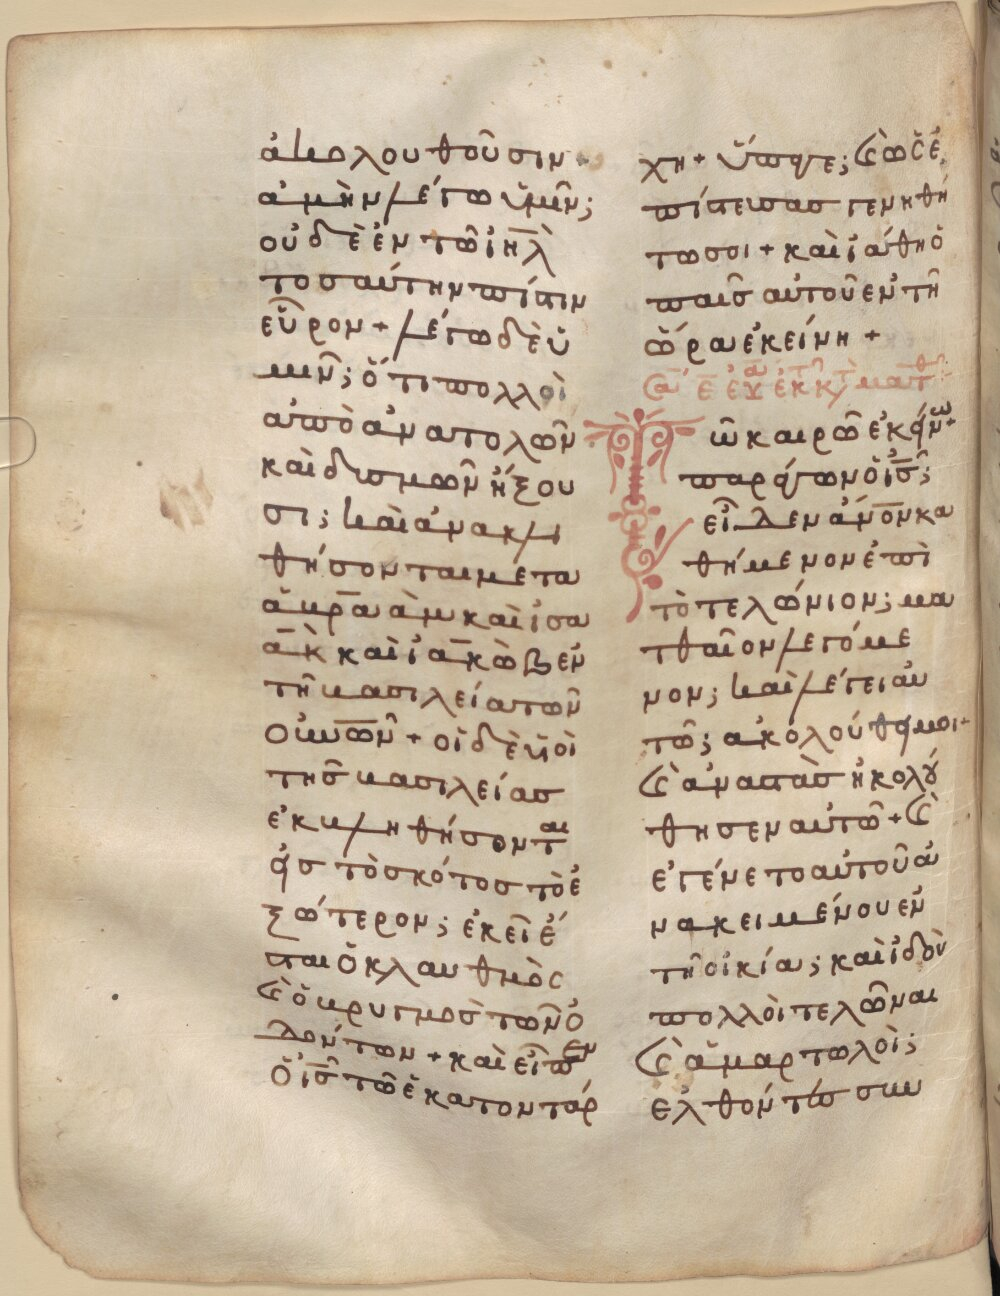 ἀκολουθοῦσιν +
ἀμὴν λέγω ὑμῖν;
οὐδὲ ἐν τῶ ἰη̅λ̀
τοσαύτην πίστιν
εὗρον + λέγω δὲ ὑ
μῖν; ὅτι πολλοὶ
ἀπὸ ἀνατολῶν
καὶ δυσμῶν ἥξου
σι; καὶ ἀνακλι
θήσονται μετα
ἀβρ̅αὰμ καὶ ἰσα
ὰ̅κ καὶ ἰα̅κὼβ ἐν
τῆ βασιλεία τῶν
οὐν̅ῶν + οἱ δὲ υἱοὶ
τῆς βασιλείας
ἐκβληθήσονται
εἰς τὸ σκότος τὸ ἐ
ξώτερον; ἐκεῖ ἔ
σται ὁ κλαυθμὸς
καὶ ὁ βρυγμὸς τῶν ὀ
δόντων + καὶ εἶπεν
ὁ ι̅ς̅ τῶ ἑκατοντάρ
χη + ὕπαγε; καὶ ὡς ἐ
πίστευσας γενηθή
τω σοι + καὶ ἰάθη ὁ
παῖς αὐτοῦ ἐν τῆ
ὥρα ἐκείνη +
Τῶ καιρῶ ἐκείνω +
παράγων ὁ ι̅ς̅;
εἶδεν ἄν̅ο̅ν κα
θήμενον ἐπὶ
τὸ τελώνιον; μα
τθαῖον λεγόμε
νον; καὶ λέγει αὐ
τῶ; ἀκολούθει μοι +
καὶ ἀναστὰς ἠκολού
θησεν αὐτῶ + καὶ
ἐγένετο αὐτοῦ ἀ
νακειμένου ἐν
τῆ οἰκία; καὶ ἰδοὺ
πολλοὶ τελῶναι
καὶ ἁμαρτωλοὶ;
ἐλθόντες συν